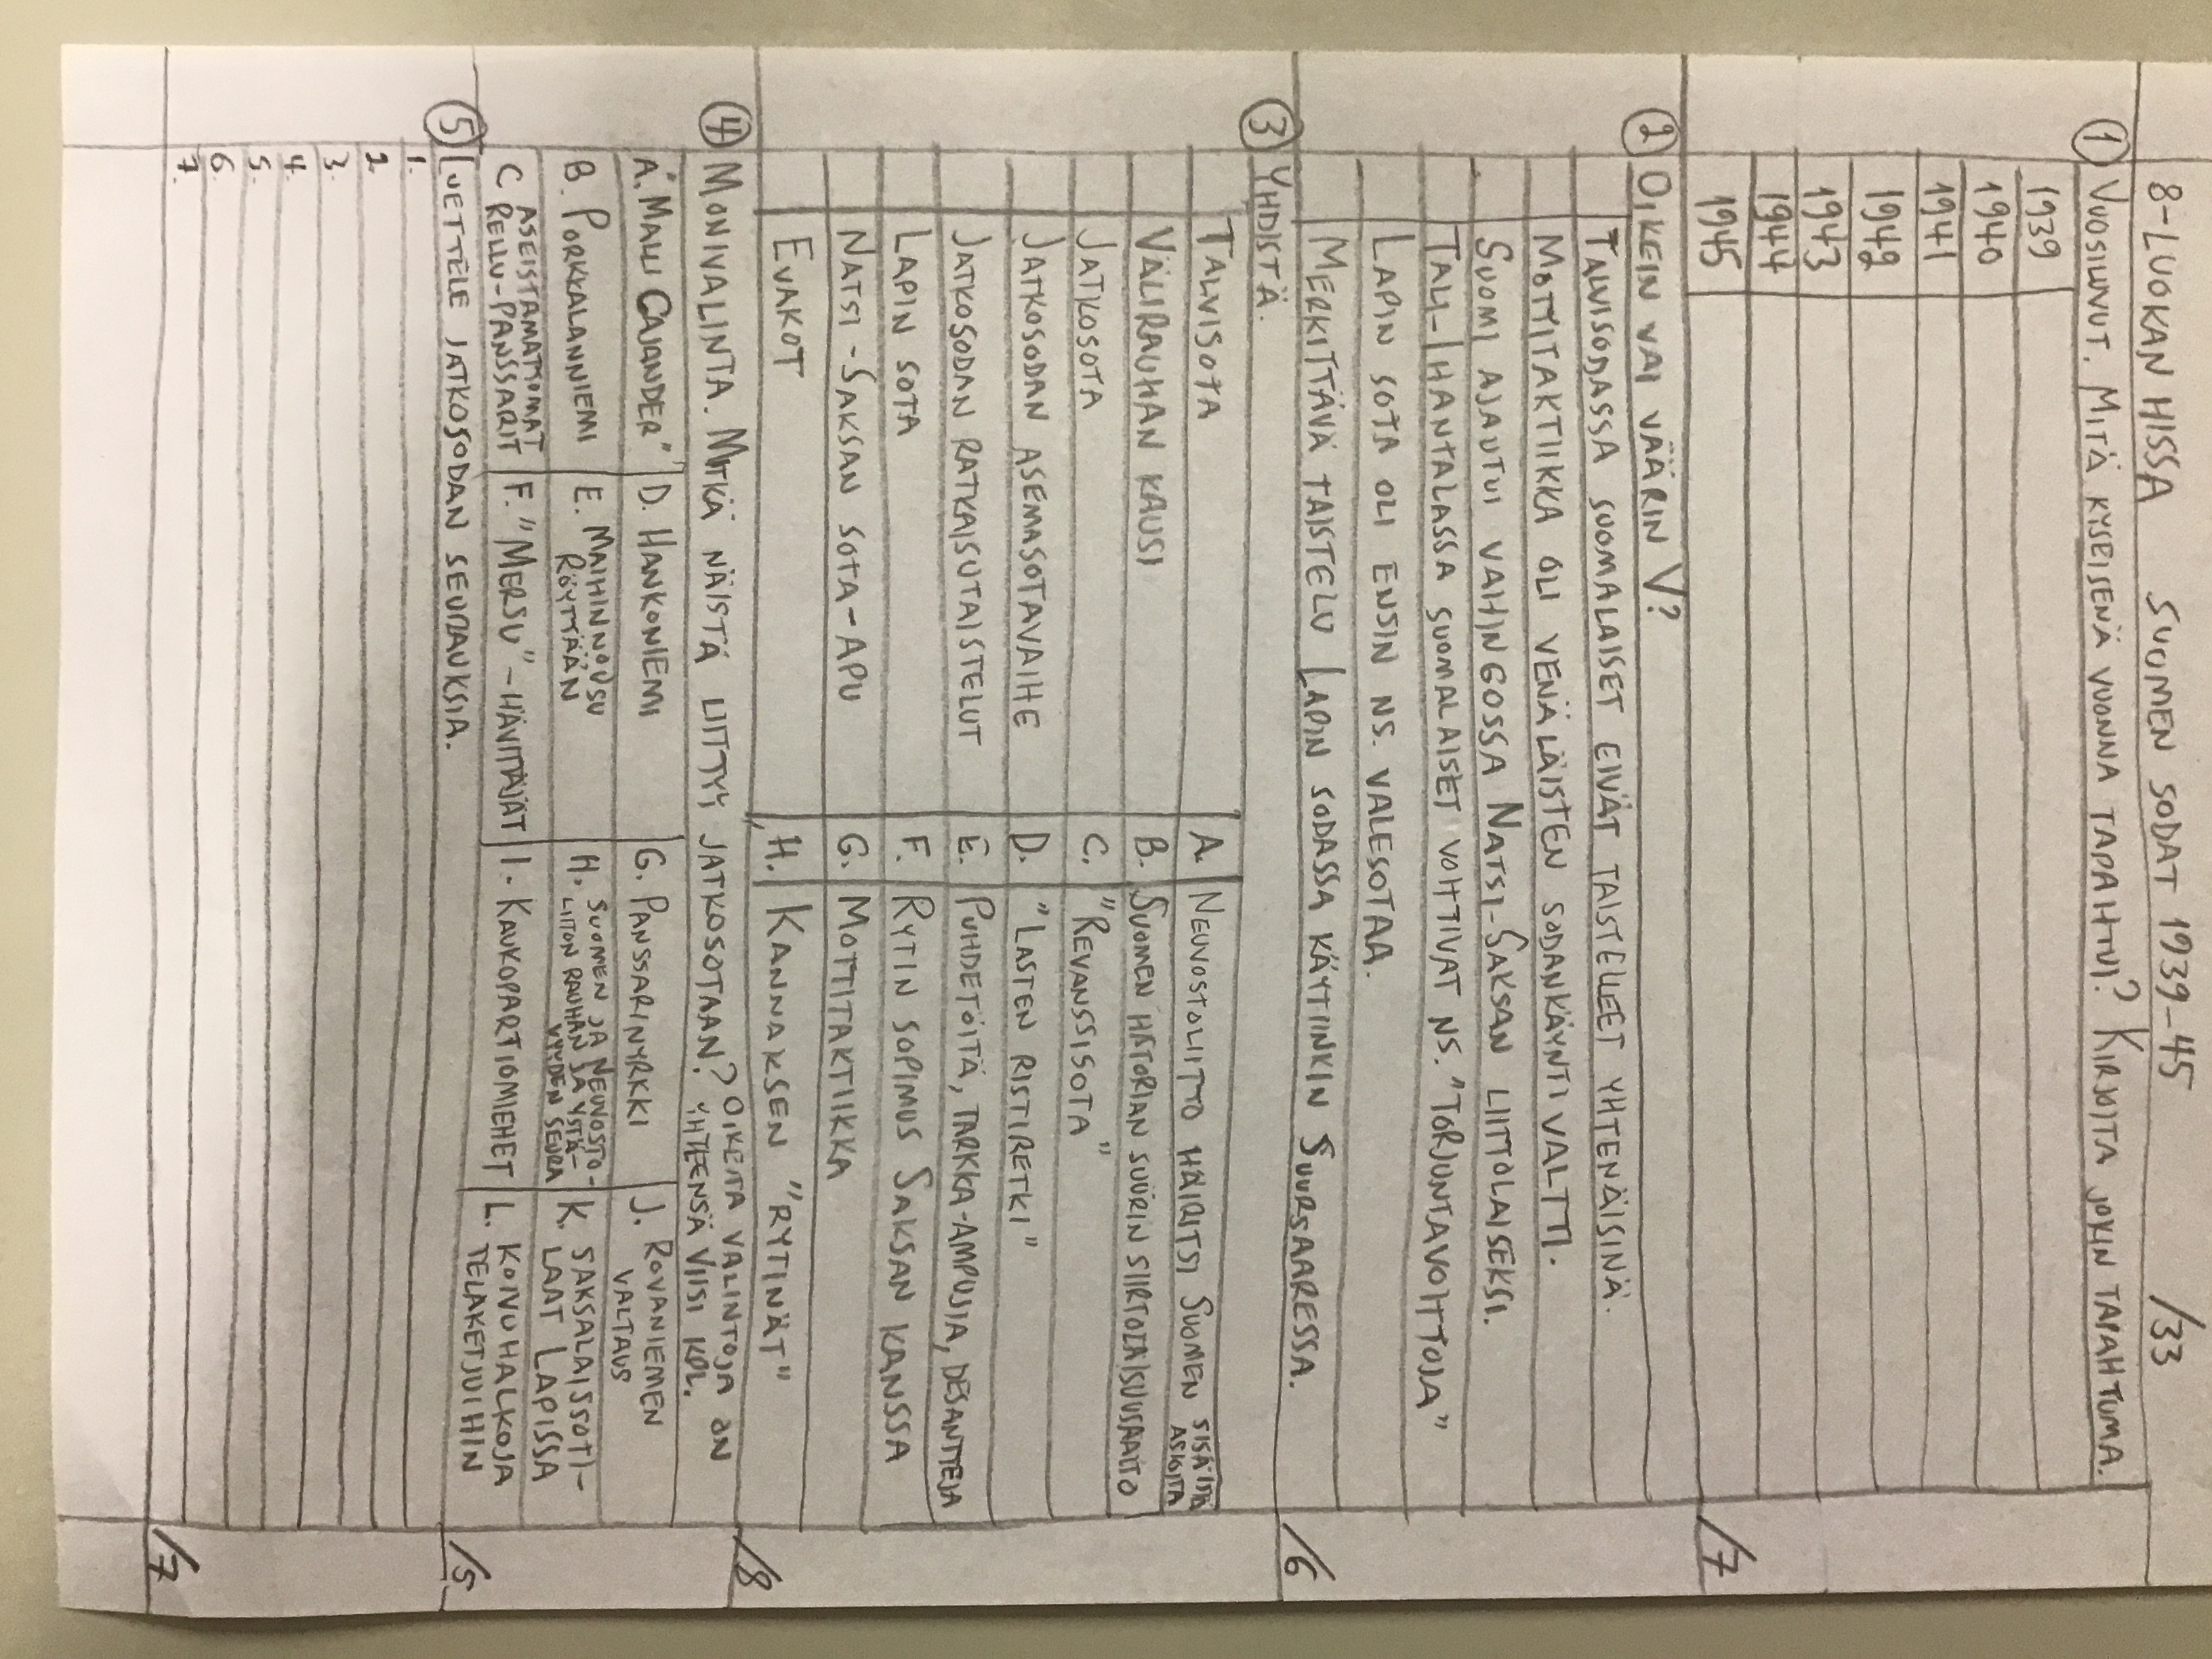 8-LUOKAN HISSA SUOMEN SODAT 1939-45 /33
① VUOSILUVUT. MITÄ KYSEISENÄ VUONNA TAPAHTUI? KIRJOITA JOKIN TAPAHTUMA.
1939
1940
1941
1942
1943
1944
1945
/7
② OIKEIN VAI VÄÄRIN V?
TALVISODASSA SUOMALAISET EIVÄT TAISTELLEET YHTENÄISINÄ.
MOTTITAKTIIKKA OLI VENÄLÄISTEN SODANKÄYNTIVALTTI.
SUOMI AJAUTUI VAHINGOSSA NATSI-SAKSAN LIITTOLAISEKSI.
TALI-IHANTALASSA SUOMALAISET VOITTIVAT NS. "TORJUNTAVOITTOJA"
LAPIN SOTA OLI ENSIN NS. VALESOTAA.
MERKITTÄVÄ TAISTELU LAPIN SODASSA KÄYTIINKIN SUURSAARESSA.
/6
③ YHDISTÄ.
TALVISOTA A. NEUVOSTOLIITTO HÄIRITSI SUOMEN SISÄISIÄ ASIOITA
VÄLIRAUHAN KAUSI B. SUOMEN HISTORIAN SUURIN SIIRTOLAISUUSAALTO
JATKOSOTA C. "REVANSSISOTA"
JATKOSODAN ASEMASOTAVAIHE D. "LASTEN RISTIRETKI"
JATKOSODAN RATKAISUTAISTELUT E. PUHDETÖITÄ, TARKKA-AMPUJIA, DESANTTEJA
LAPIN SOTA F. RYTIN SOPIMUS SAKSAN KANSSA
NATSI-SAKSAN SOTA-APU G. MOTTITAKTIIKKA
EVAKOT H. KANNAKSEN "RYTINÄT"
/8
④ MONIVALINTA. MITKÄ NÄISTÄ LIITTYY JATKOSOTAAN? OIKEITA VALINTOJA ON YHTEENSÄ VIISI KPL.
A. "MALLI CAJANDER" D. HANKONIEMI G. PANSSARINYRKKI J. ROVANIEMEN VALTAUS
B. PORKKALANNIEMI E. MAIHINNOUSU RÖYTTÄÄN H. SUOMEN JA NEUVOSTO-LIITON RAUHAN JA YSTÄ-VYYDEN SEURA K. SAKSALAISSOTI-LAAT LAPISSA
C ASEISTAMATTOMAT RELLU-PANSSARIT F. "MERSU"-HÄVITTÄJÄT I. KAUKOPARTIOMIEHET L. KOIVUHALKOJA TELAKETJUIHIN
/5
⑤ LUETTELE JATKOSODAN SEURAUKSIA.
1.
2
3.
4.
5.
6.
7.
/7